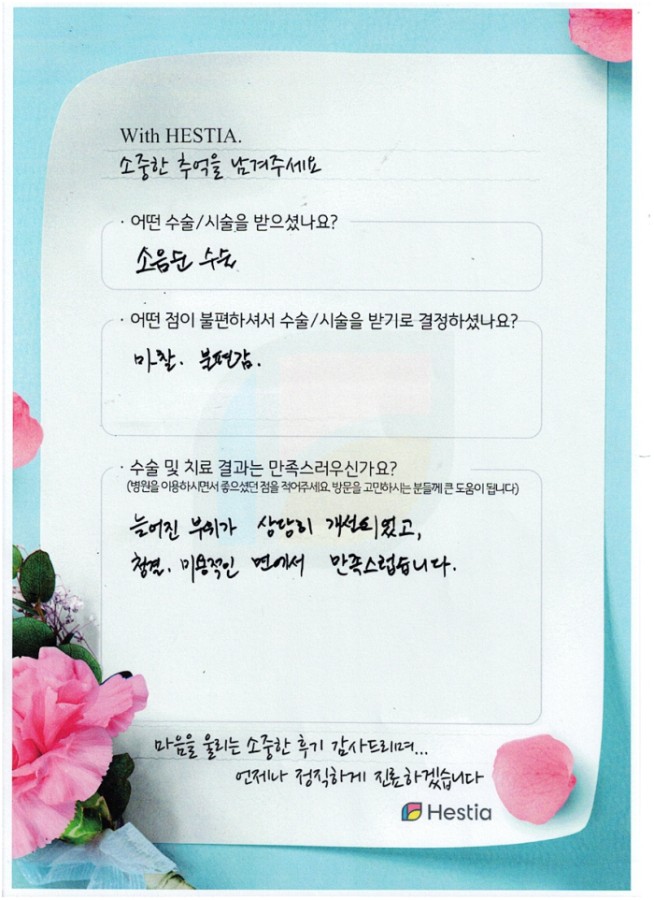 With HESTIA.
소중한 추억을 남겨주세요
· 어떤 수술/시술을 받으셨나요?
소음순 수술
· 어떤 점이 불편하셔서 수술/시술을 받기로 결정하셨나요?
마찰. 불편감.
· 수술 및 치료 결과는 만족스러우신가요?
(병원을 이용하시면서 좋으셨던 점을 적어주세요. 방문을 고민하시는 분들께 큰 도움이 됩니다)
늘어진 부위가 상당히 개선되었고,
청결. 미용적인 면에서 만족스럽습니다.
마음을 울리는 소중한 후기 감사드리며...
언제나 정직하게 진료하겠습니다
Hestia